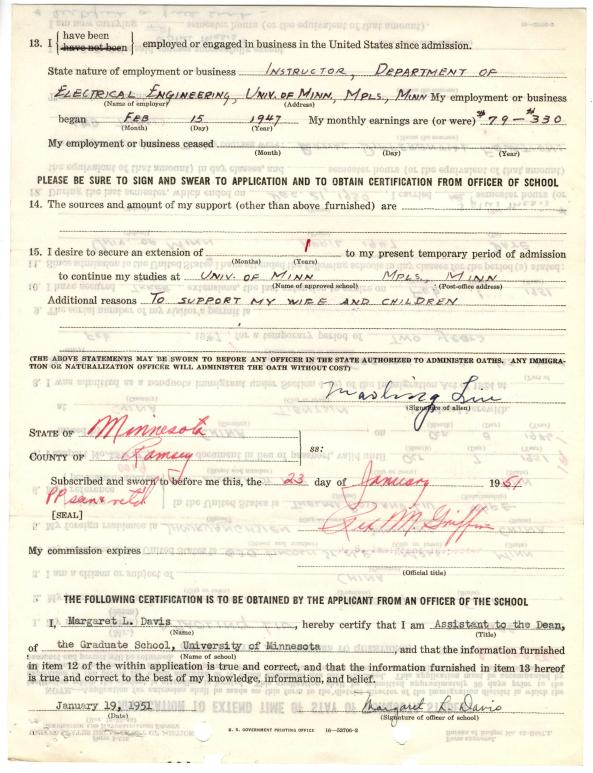 13. I { have been
have not been } employed or engaged in business in the United States since admission.
State nature of employment or business INSTRUCTOR, DEPARTMENT OF
ELECTRICAL ENGINEERING, UNIV. OF MINN, MPLS, MINN My employment or business
(Name of employer) (Address)
began FEB 15 1947 My monthly earnings are (or were) $79-$330
(Month) (Day) (Year)
My employment or business ceased
(Month) (Day) (Year)
PLEASE BE SURE TO SIGN AND SWEAR TO APPLICATION AND TO OBTAIN CERTIFICATION FROM OFFICER OF SCHOOL
14. The sources and amount of my support (other than above furnished) are
15. I desire to secure an extension of 1 to my present temporary period of admission
(Months) (Years)
to continue my studies at UNIV. OF MINN MPLS, MINN
(Name of approved school) (Post-office address)
Additional reasons TO SUPPORT MY WIFE AND CHILDREN
(THE ABOVE STATEMENTS MAY BE SWORN TO BEFORE ANY OFFICER IN THE STATE AUTHORIZED TO ADMINISTER OATHS. ANY IMMIGRA-
TION OR NATURALIZATION OFFICER WILL ADMINISTER THE OATH WITHOUT COST)
Maoling Liu
(Signature of alien)
STATE OF Minnesota
ss:
COUNTY OF Ramsey
Subscribed and sworn to before me this, the 23 day of January 1951
PP seen & retd
[SEAL] Rex M. Griffin
My commission expires
(Official title)
THE FOLLOWING CERTIFICATION IS TO BE OBTAINED BY THE APPLICANT FROM AN OFFICER OF THE SCHOOL
I, Margaret L. Davis, hereby certify that I am Assistant to the Dean,
(Name) (Title)
of the Graduate School, University of Minnesota, and that the information furnished
(Name of school)
in item 12 of the within application is true and correct, and that the information furnished in item 13 hereof
is true and correct to the best of my knowledge, information, and belief.
January 19, 1951 Margaret L. Davis
(Date) (Signature of officer of school)
U. S. GOVERNMENT PRINTING OFFICE 16-53706-2